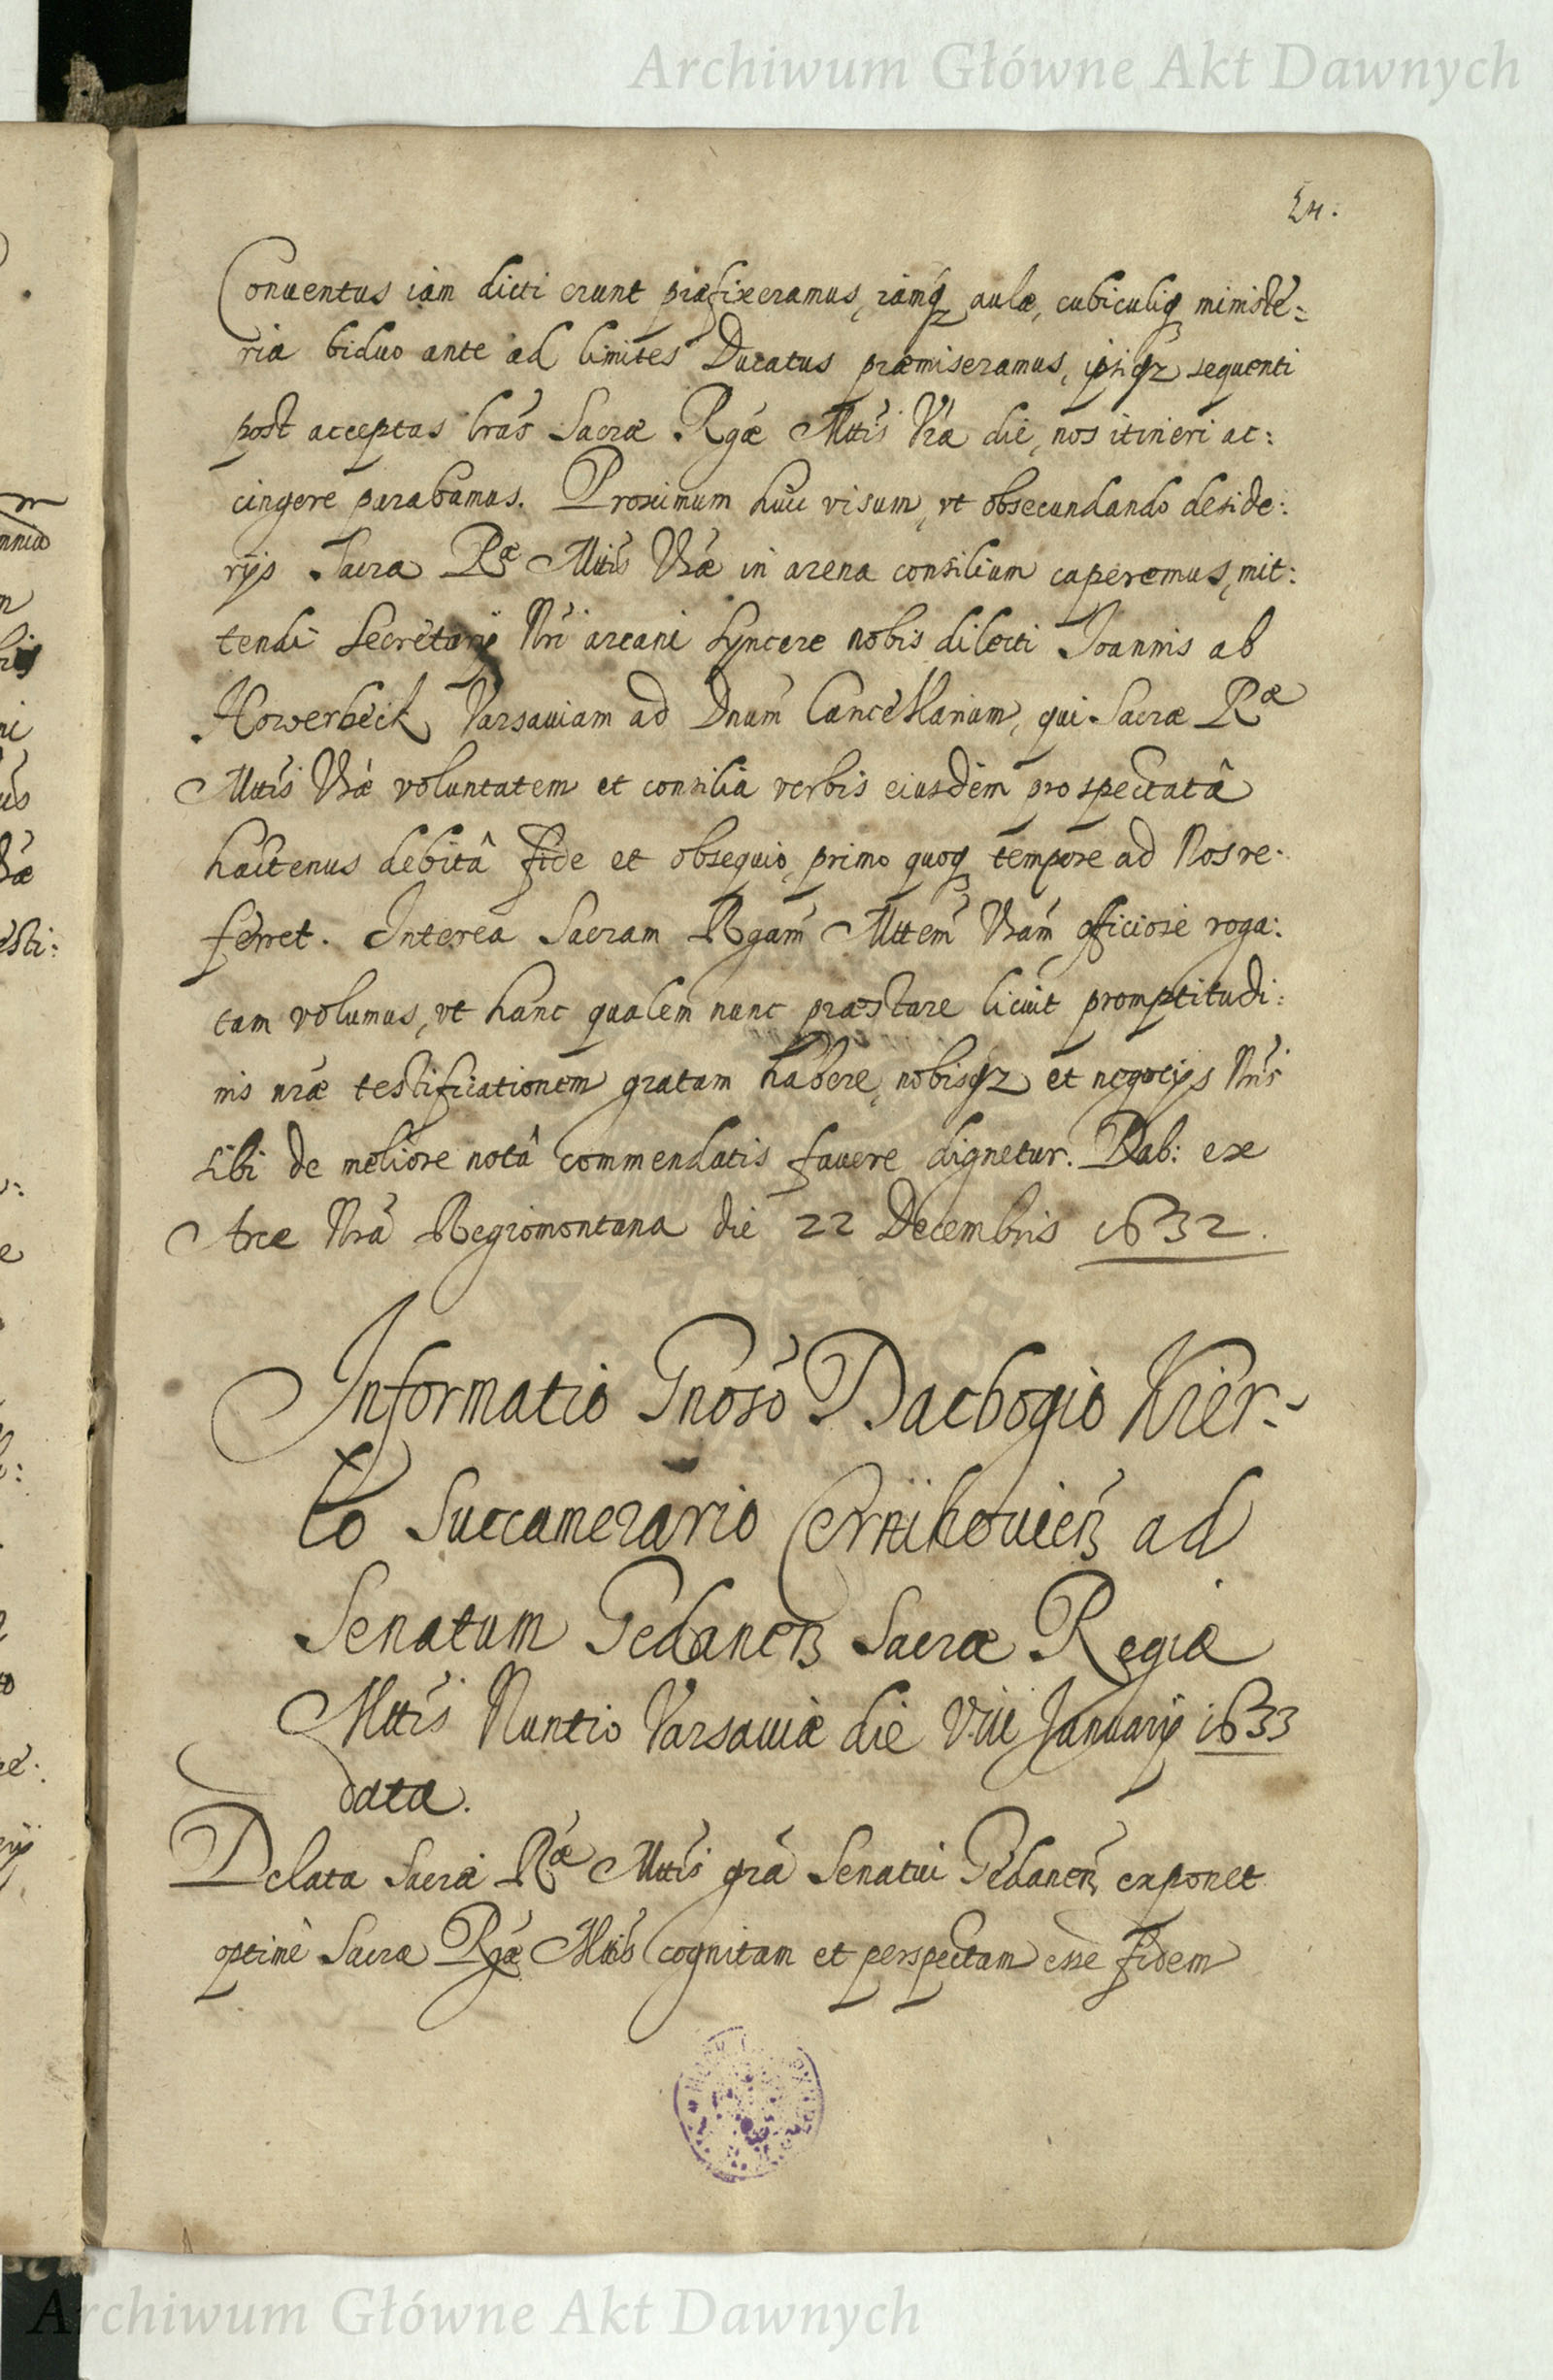 Archiwum Główne Akt Dawnych
24.
Conuentus iam dicti erunt præfixeramus, iamq; aulæ, cubiculiq; ministe=
ria biduo ante ad limites Ducatus præmiseramus, ipsiq; sequenti
post acceptas lrãs Sacræ Rgæ Mttis Vræ die, nos itineri ac:
cingere parabamus. Proximum huic visum, vt obsecundando deside:
rijs Sacræ Ræ Mttis Vræ in arena consilium caperemus, mit:
tendi Secretarij Nri arcani Syncere nobis dilecti Joannis ab
Howerbeck Varsauiam ad Dnum Cancellarium, qui Sacræ Ræ
Mttis Vræ voluntatem et consilia verbis eiusdem prospectatâ
hactenus debitâ fide et obsequio, primo quoq; tempore ad Nos re:
ferret. Interea Sacram Rgam Mttem Vram officiose roga:
tam volumus, vt hanc qualem nunc præstare licuit promptitudi:
nis nræ testificationem gratam habere, nobisq; et negocijs Nris
sibi de meliore notâ commendatis fauere dignetur. Dab: ex
Arce Nra Regiomontana die 22 Decembris 1632.
Informatio Gnoso Dachogio Kier-
lo Succamerario Cernihouien ad
Senatum Gedanen Sacræ Regiæ
Mttis Nuntio Varsauiæ die VIII Januarij 1633
data.
Delata Sacræ Ræ Mttis gra Senatui Gedanen exponet
optime Sacræ Rgæ Mttis cognitam et perspectam esse fidem
Archiwum Główne Akt Dawnych